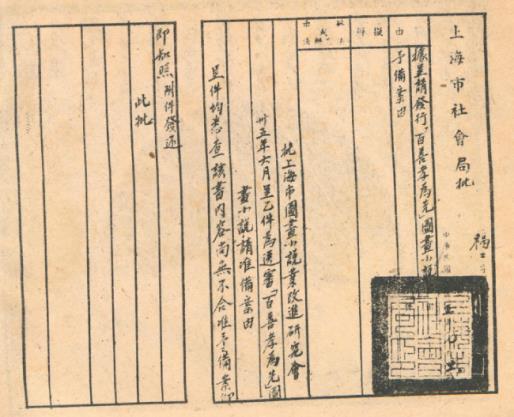 上海市社會局批
據呈請發行「百善孝為先」圖畫小說
予備案由
批上海市圖畫小說業改進研究會
卅五年六月呈乙件為送審「百善孝為先」圖
畫小說請准備案由
呈件均悉查該書內容尚無不合准予備案仰
即知照附件發還
此批